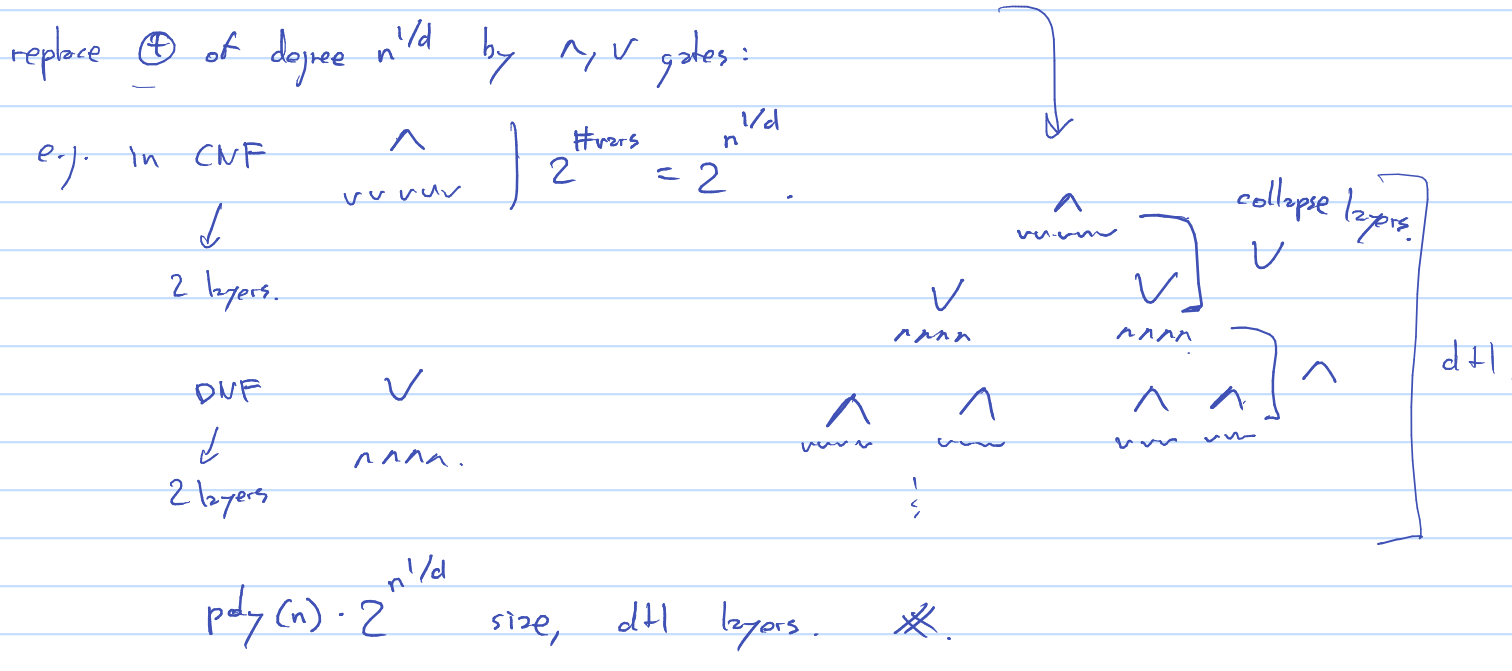 replace ⊕ of degree n^{1/d} by ∧, ∨ gates:
e.g. in CNF ∧ 2^{#vars} = 2^{n^{1/d}}.
∨∨∨∨∨
2 layers.
∧ collapse layers.
∨∨∨∨∨ ∨
∨ ∨
∧∧∧∧ ∧∧∧∧
DNF ∨ ∧ ∧ ∧ ∧ ∧ d+1
∧∧∧∧. ∨∨∨∨ ∨∨∨ ∨∨∨ ∨∨
2 layers
poly(n) · 2^{n^{1/d}} size, d+1 layers.